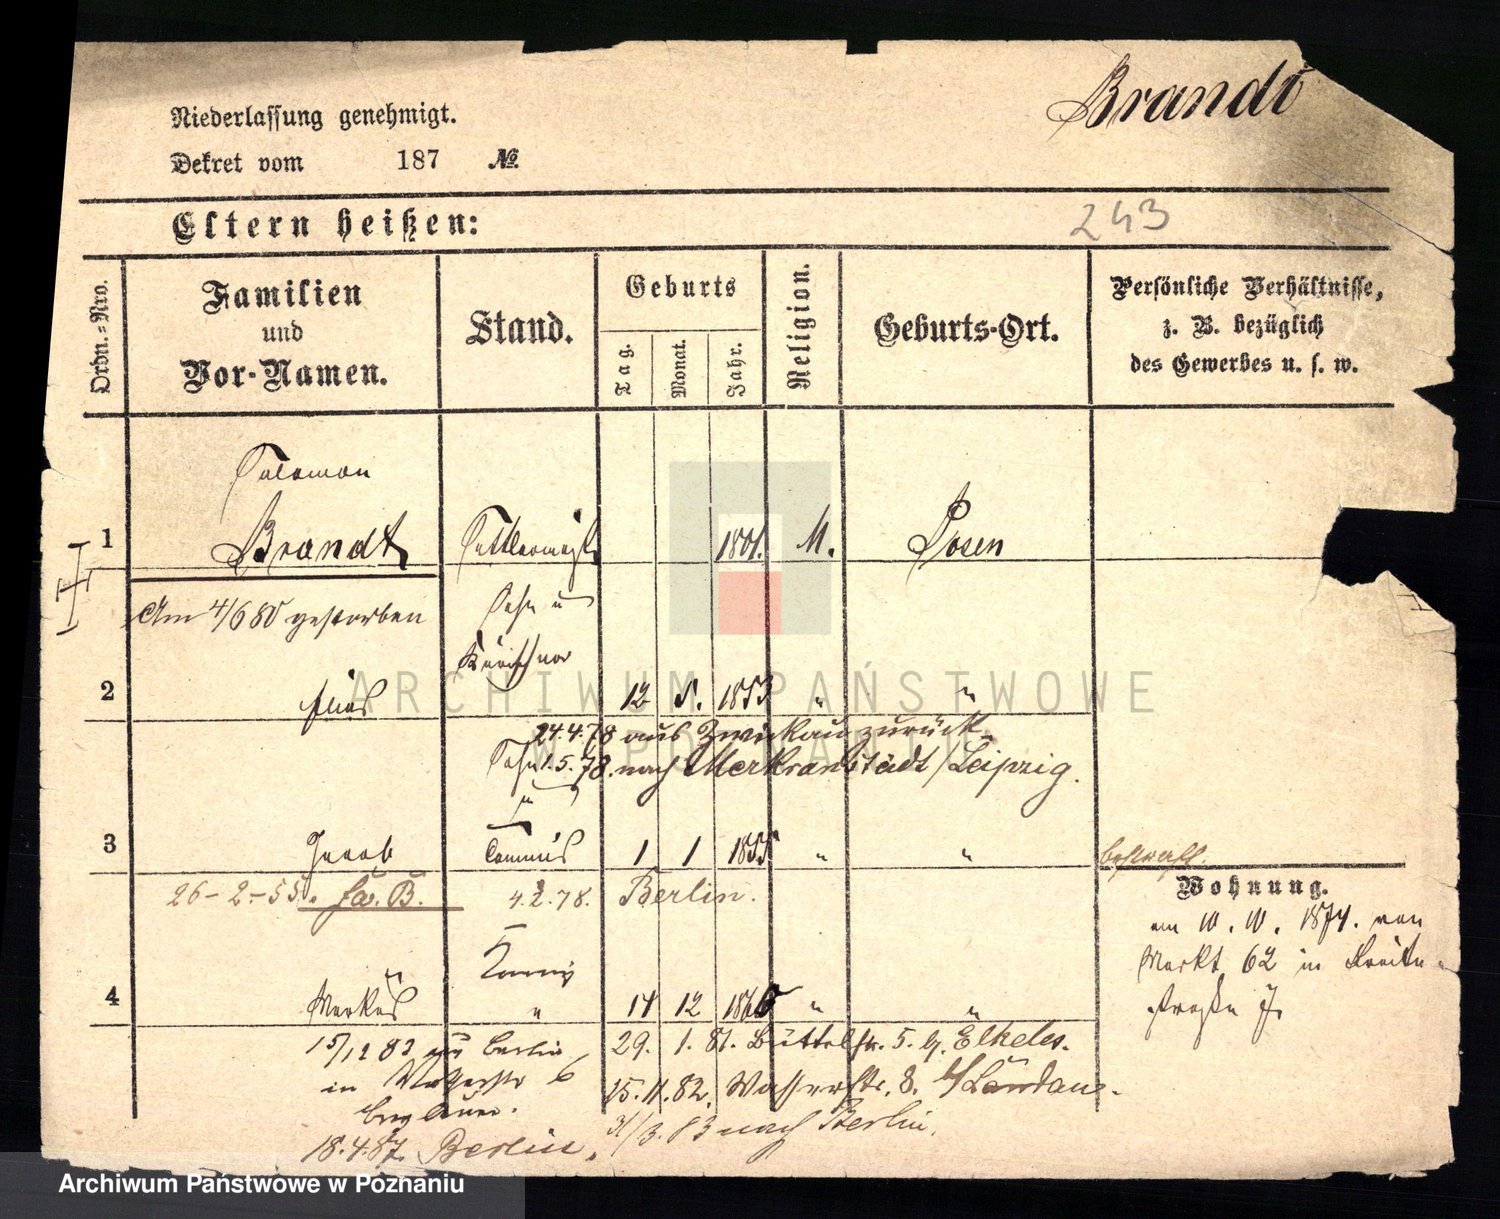 Brandt
Niederlassung genehmigt.
Dekret vom 187 №
Eltern heißen:
243
Ordn.-Nro.
Familien
und
Vor-Namen.
Stand.
Geburts
Tag.
Monat.
Jahr.
Religion.
Geburts-Ort.
Persönliche Verhältnisse,
z. B. bezüglich
des Gewerbes u. s. w.
Salomon
1 Brandt Sattlermstr 1801. M. Posen
Am 4/6 80 gestorben
Sohn u
Kürschner
2 Elias 12 8. 1853 " "
24.4.78 aus Zwickau zurück
Sohn 1.5.78. nach Merkranstädt/Leipzig.
3 Jacob Commis 1 1 1855 " "
26-2-55. fa. B. 4.2.78. Berlin.
Wohnung.
am 10. 10. 1874. von
Markt 62 in Breite-
straße 7.
4 Markus " 14 12 1866 " "
15/12 83 Berlin
in 6
29. 1. 81. Büttelstr. 5. b. Elkeles.
15.11.82. Wasserstr. 8. b/Landau.
31/3. 83 nach Berlin.
18.4.87. Berlin.
ARCHIWUM PAŃSTWOWE
W POZNANIU
Archiwum Państwowe w Poznaniu